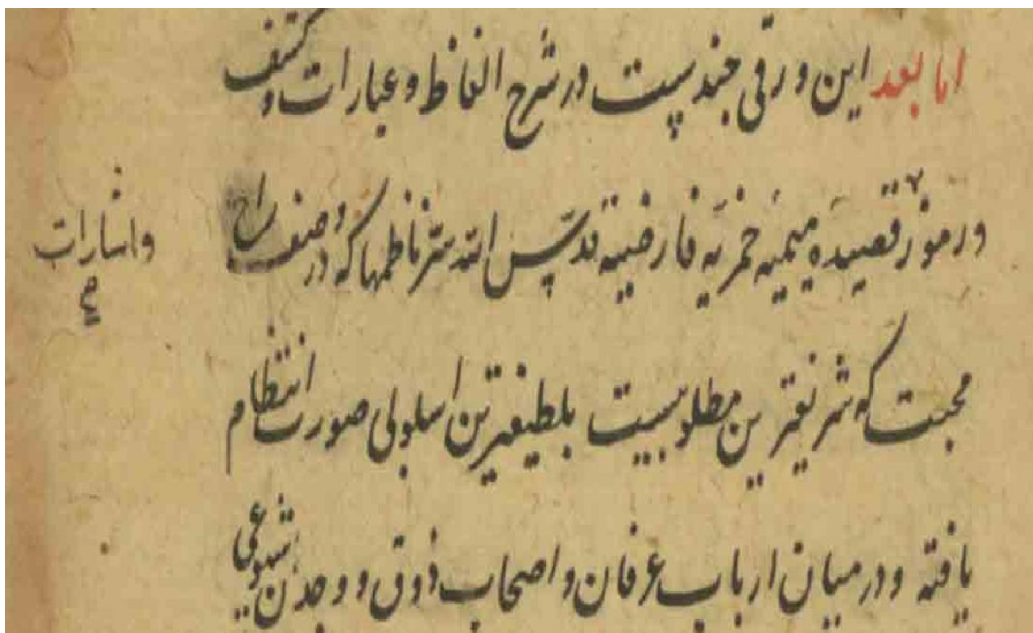 اما بعد این ورقی چندیست در شرح الفاظ و عبارات و کشف
و رموز قصیده میمیه خمریه فارضیه قدس الله سر ناظمها که در وصف راح
واشارات
صح
محبت که شریفترین مطلوبیست بلطیفترین اسلوبی صورت انتظام
یافته و در میان ارباب عرفان و اصحاب ذوق و وجدان شیوعی